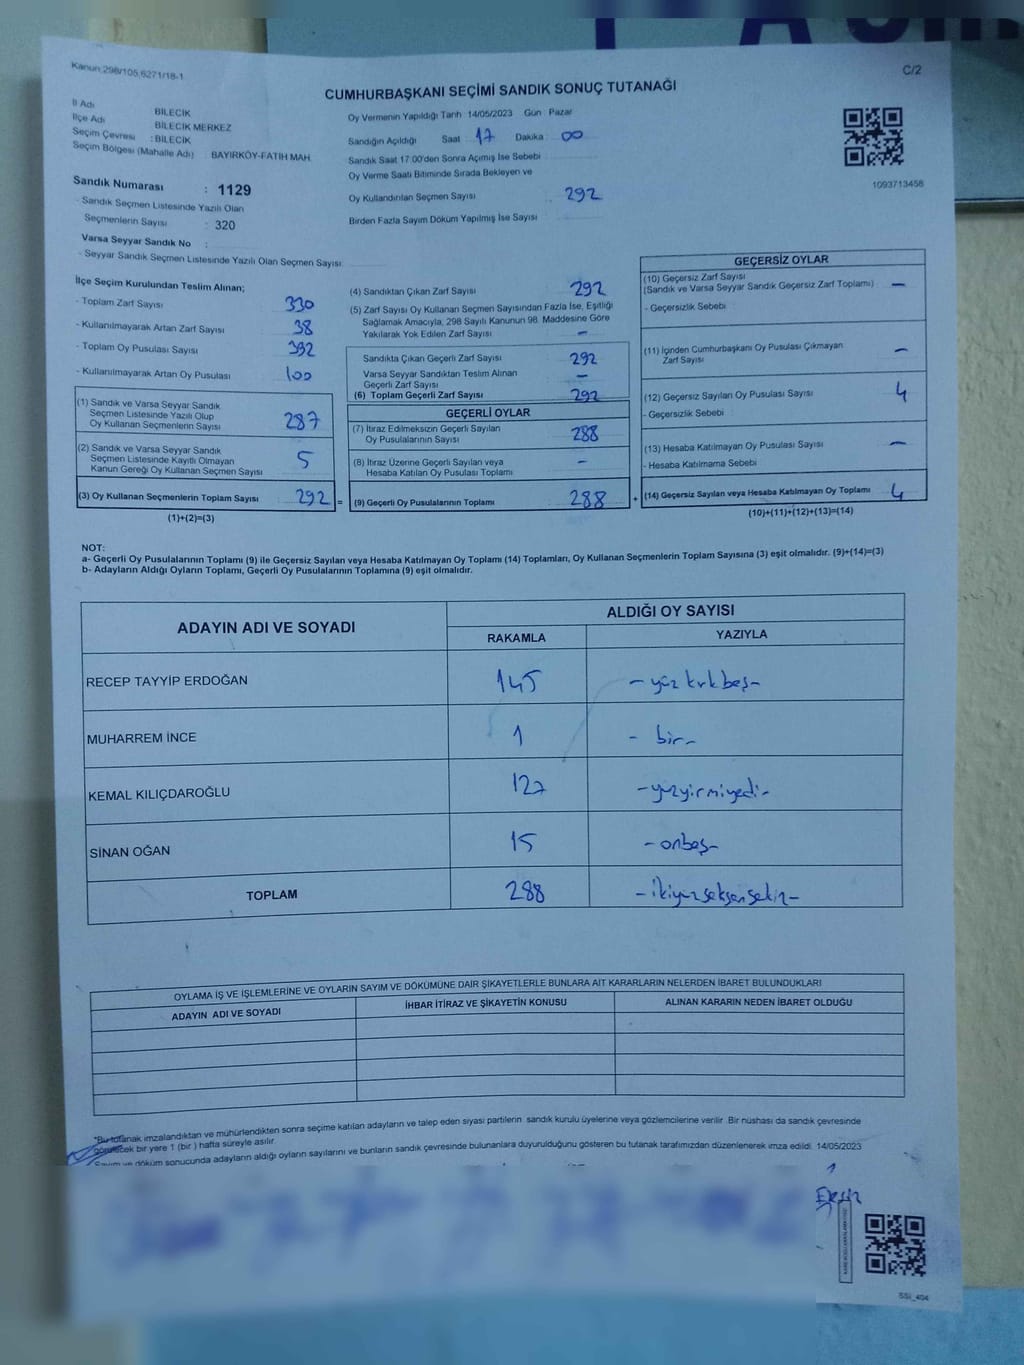 Kanun:298/105,6271/18-1
C/2
CUMHURBAŞKANI SEÇİMİ SANDIK SONUÇ TUTANAĞI
İl Adı BİLECİK
İlçe Adı BİLECİK MERKEZ
Seçim Çevresi : BİLECİK
Seçim Bölgesi (Mahalle Adı) : BAYIRKÖY-FATİH MAH.
Sandık Numarası : 1129
- Sandık Seçmen Listesinde Yazılı Olan
Seçmenlerin Sayısı : 320
Varsa Seyyar Sandık No :
- Seyyar Sandık Seçmen Listesinde Yazılı Olan Seçmen Sayısı:
Oy Vermenin Yapıldığı Tarih 14/05/2023 Gün : Pazar
Sandığın Açıldığı Saat : 17 Dakika : 00
Sandık Saat 17:00'den Sonra Açımış İse Sebebi
Oy Verme Saati Bitiminde Sırada Bekleyen ve
Oy Kullandırılan Seçmen Sayısı : 292
Birden Fazla Sayım Döküm Yapılmış İse Sayısı :
1093713458
İlçe Seçim Kurulundan Teslim Alınan;
- Toplam Zarf Sayısı 330
- Kullanılmayarak Artan Zarf Sayısı 38
- Toplam Oy Pusulası Sayısı 392
- Kullanılmayarak Artan Oy Pusulası 100
(1) Sandık ve Varsa Seyyar Sandık
Seçmen Listesinde Yazılı Olup
Oy Kullanan Seçmenlerin Sayısı 287
(2) Sandık ve Varsa Seyyar Sandık
Seçmen Listesinde Kayıtlı Olmayan
Kanun Gereği Oy Kullanan Seçmen Sayısı 5
(3) Oy Kullanan Seçmenlerin Toplam Sayısı 292 =
(1)+(2)=(3)
(4) Sandıktan Çıkan Zarf Sayısı 292
(5) Zarf Sayısı Oy Kullanan Seçmen Sayısından Fazla İse, Eşitliği
Sağlamak Amacıyla, 298 Sayılı Kanunun 98. Maddesine Göre
Yakılarak Yok Edilen Zarf Sayısı –
Sandıkta Çıkan Geçerli Zarf Sayısı 292
Varsa Seyyar Sandıktan Teslim Alınan
Geçerli Zarf Sayısı –
(6) Toplam Geçerli Zarf Sayısı 292
GEÇERLİ OYLAR
(7) İtiraz Edilmeksizin Geçerli Sayılan
Oy Pusulalarının Sayısı 288
(8) İtiraz Üzerine Geçerli Sayılan veya
Hesaba Katılan Oy Pusulası Toplamı –
(9) Geçerli Oy Pusulalarının Toplamı 288 +
GEÇERSİZ OYLAR
(10) Geçersiz Zarf Sayısı
(Sandık ve Varsa Seyyar Sandık Geçersiz Zarf Toplamı) –
- Geçersizlik Sebebi
(11) İçinden Cumhurbaşkanı Oy Pusulası Çıkmayan
Zarf Sayısı –
(12) Geçersiz Sayılan Oy Pusulası Sayısı 4
- Geçersizlik Sebebi
(13) Hesaba Katılmayan Oy Pusulası Sayısı –
- Hesaba Katılmama Sebebi
(14) Geçersiz Sayılan veya Hesaba Katılmayan Oy Toplamı 4
(10)+(11)+(12)+(13)=(14)
NOT:
a- Geçerli Oy Pusulalarının Toplamı (9) ile Geçersiz Sayılan veya Hesaba Katılmayan Oy Toplamı (14) Toplamları, Oy Kullanan Seçmenlerin Toplam Sayısına (3) eşit olmalıdır. (9)+(14)=(3)
b- Adayların Aldığı Oyların Toplamı, Geçerli Oy Pusulalarının Toplamına (9) eşit olmalıdır.
ADAYIN ADI VE SOYADI
ALDIĞI OY SAYISI
RAKAMLA YAZIYLA
RECEP TAYYİP ERDOĞAN 145 – yüz kırk beş –
MUHARREM İNCE 1 – bir –
KEMAL KILIÇDAROĞLU 127 – yüzyirmiyedi –
SİNAN OĞAN 15 – onbeş –
TOPLAM 288 – ikiyüzseksensekiz –
OYLAMA İŞ VE İŞLEMLERİNE VE OYLARIN SAYIM VE DÖKÜMÜNE DAİR ŞİKAYETLERLE BUNLARA AİT KARARLARIN NELERDEN İBARET BULUNDUKLARI
ADAYIN ADI VE SOYADI İHBAR İTİRAZ VE ŞİKAYETİN KONUSU ALINAN KARARIN NEDEN İBARET OLDUĞU
"Bu tutanak imzalandıktan ve mühürlendikten sonra seçime katılan adayların ve talep eden siyasi partilerin sandık kurulu üyelerine veya gözlemcilerine verilir. Bir nüshası da sandık çevresinde
görülecek bir yere 1 (bir) hafta süreyle asılır.
Sayım ve döküm sonucunda adayların aldığı oyların sayılarını ve bunların sandık çevresinde bulunanlara duyurulduğunu gösteren bu tutanak tarafımızdan düzenlenerek imza edildi. 14/05/2023
SSİ_404